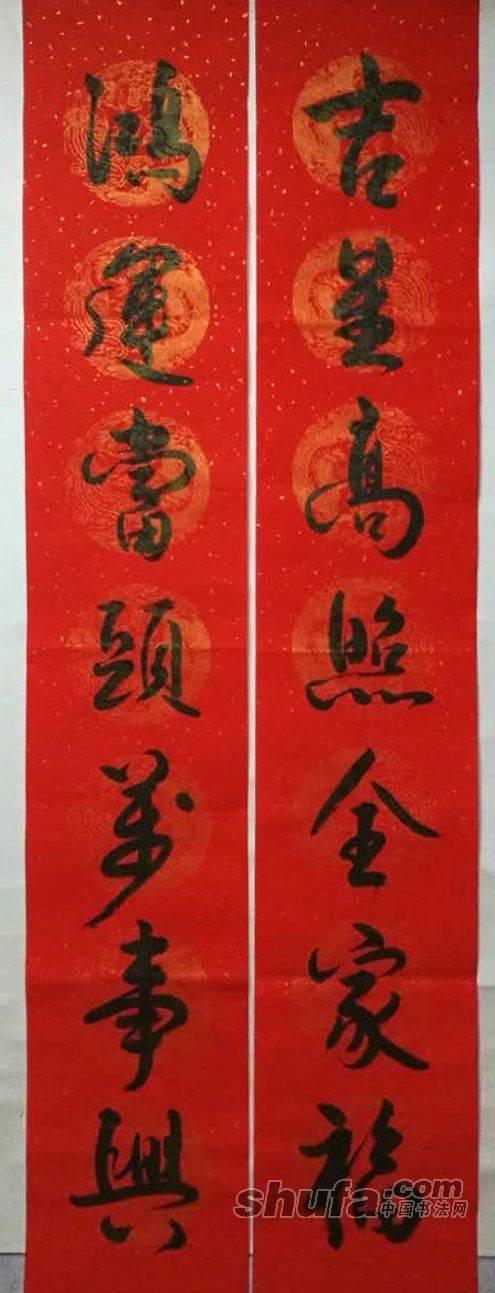 吉星高照全家福
鴻運當頭萬事興
shufa.com
中国书法网